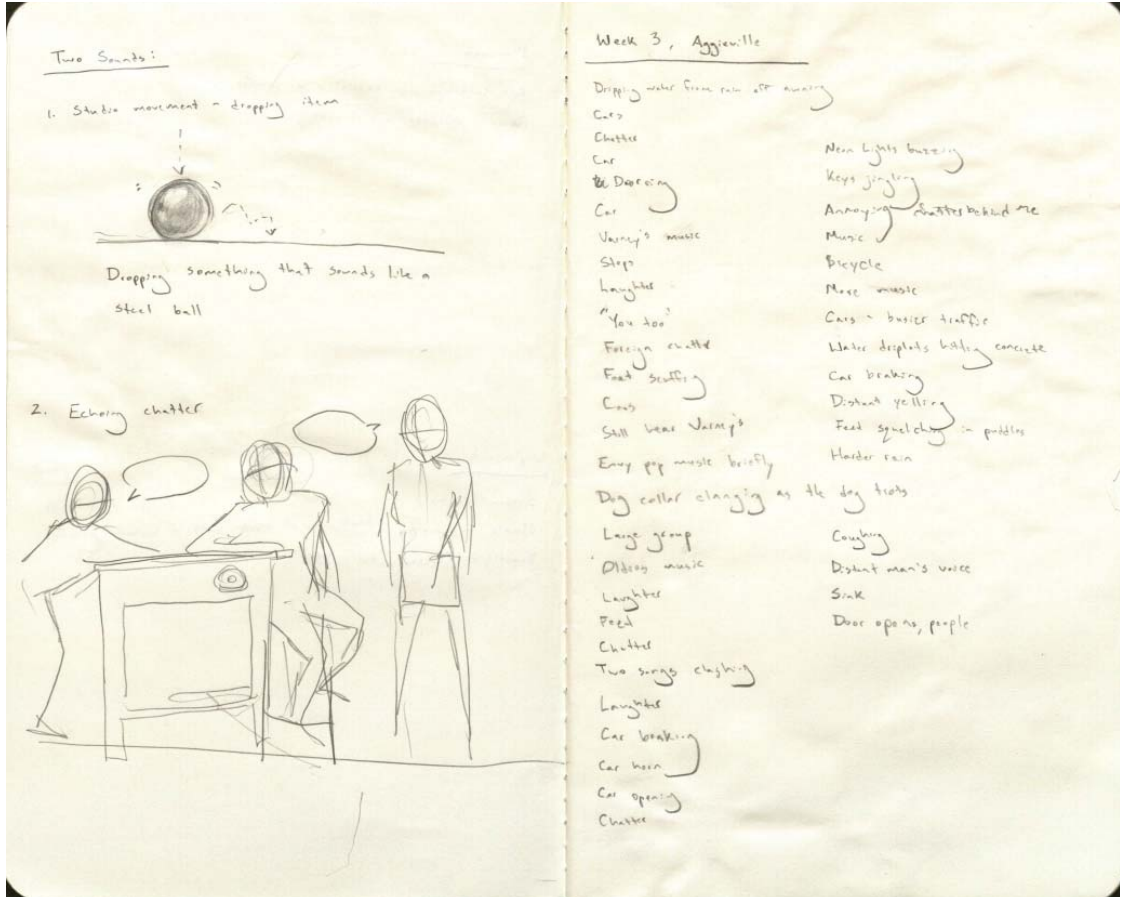 Two Sounds:
1. Studio movement - dropping item
Dropping something that sounds like a
steel ball
2. Echoing chatter
Week 3, Aggieville
Dripping water from rain off awning
Cars
Chatter
Car
Car
Varney's music
Steps
Laughter
"You too"
Foreign chatter
Foot scuffing
Still hear Varney's
pop music briefly
Dog collar clanging as the dog trots
Large group
Oldies music
Laughter
Feed
Chatter
Two songs clashing
Laughter
Car braking
Car horn
Car opening
Chatter
Neon lights buzzing
Keys jingling
Annoying chatter behind me
Music
Bicycle
More music
Cars - busier traffic
Water droplets hitting concrete
Car braking
Distant yelling
Feet squelching in puddles
Harder rain
Coughing
Distant man's voice
Sink
Door opens, people